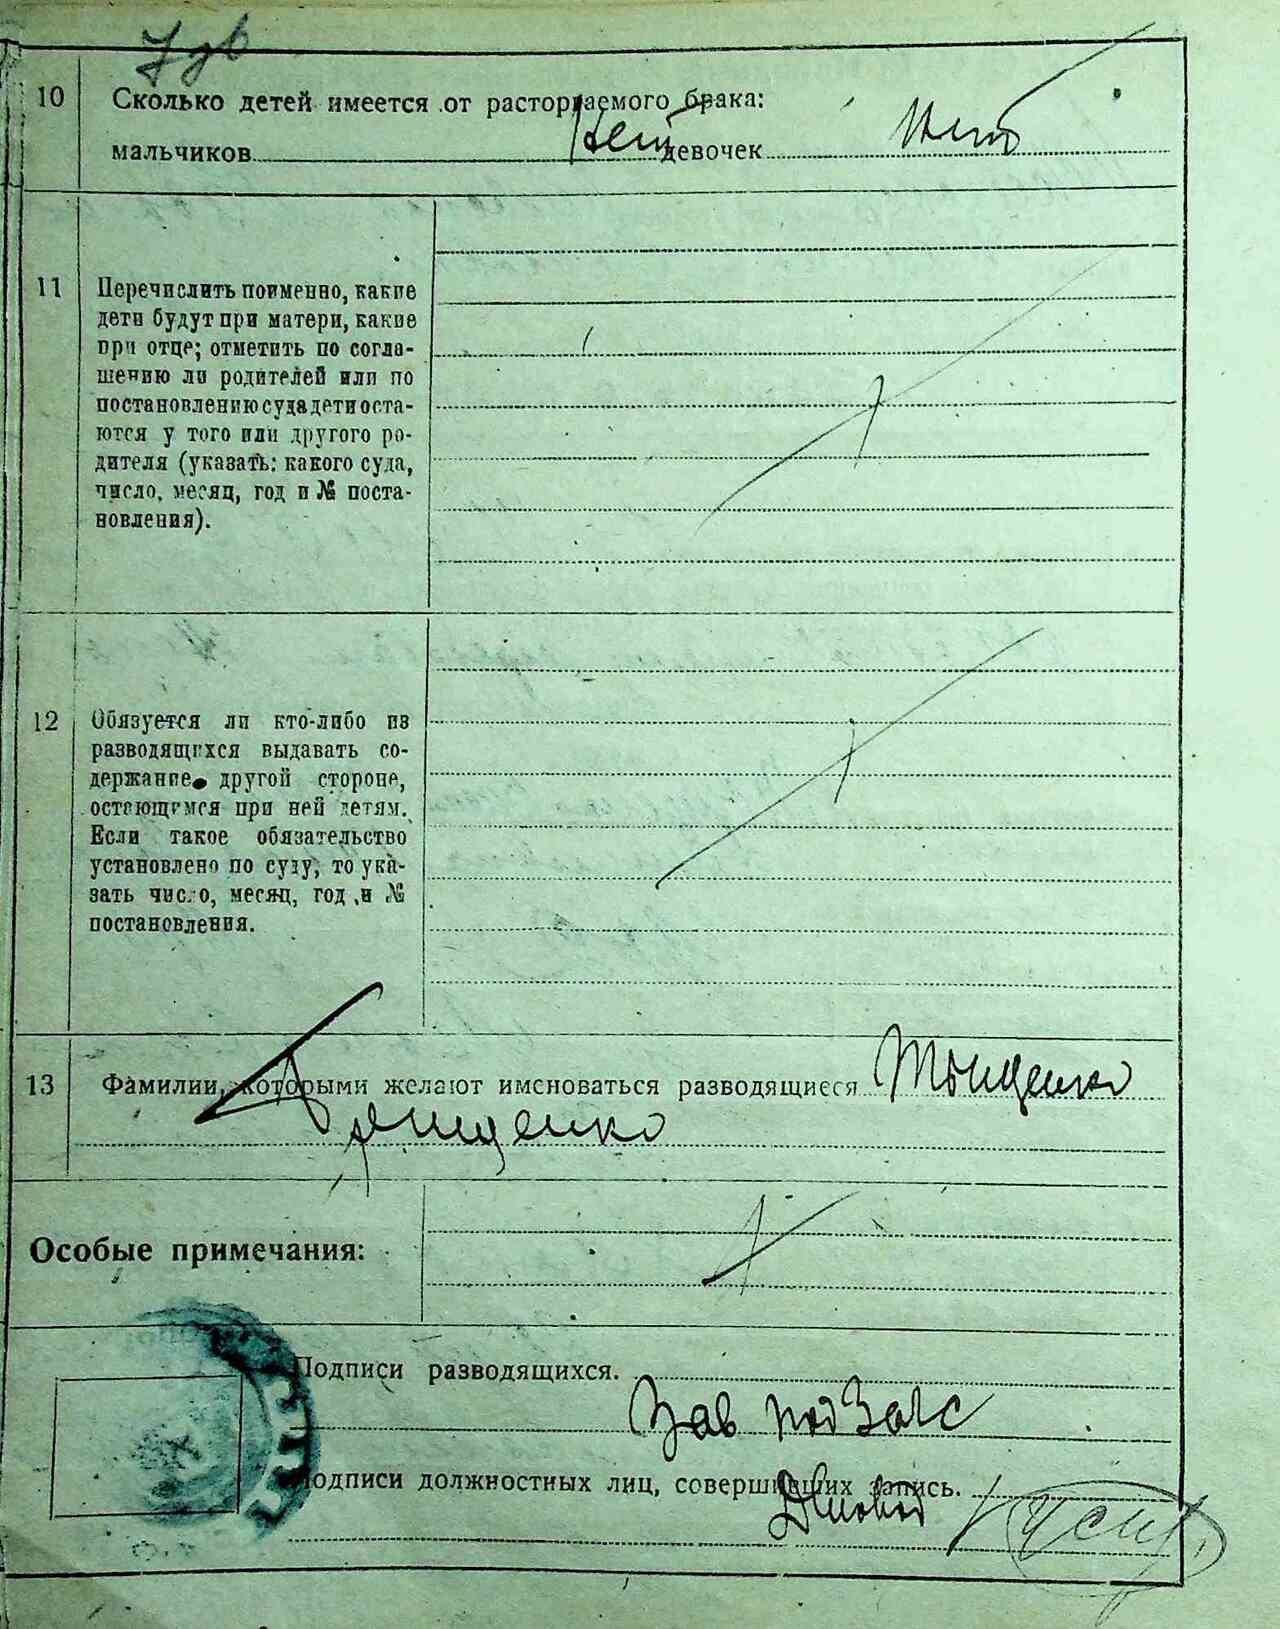 10 Сколько детей имеется от расторгаемого брака:
мальчиков нет девочек нет
11 Перечислить поименно, какие
дети будут при матери, какие
при отце; отметить по согла-
шению ли родителей или по
постановлению суда дети оста-
ются у того или другого ро-
дителя (указать: какого суда,
число, месяц, год и № поста-
новления).
12 Обязуется ли кто-либо из
разводящихся выдавать со-
держание другой стороне,
остающимся при ней детям.
Если такое обязательство
установлено по суду, то ука-
зать число, месяц, год и №
постановления.
13 Фамилии, которыми желают именоваться разводящиеся
Особые примечания:
Подписи разводящихся.
Зав подЗагс
Подписи должностных лиц, совершивших запись.